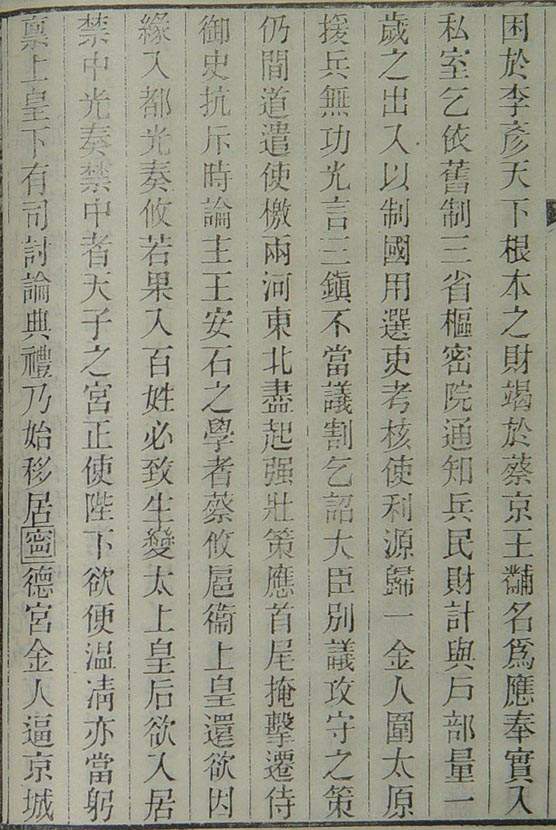 困於李彥天下根本之財竭於蔡京王黼名爲應奉實入
私室乞依舊制三省樞密院通知兵民財計與戶部量一
歲之出入以制國用選吏考核使利源歸一金人圍太原
援兵無功光言三鎭不當議割乞詔大臣別議攻守之策
仍間道遣使檄兩河東北盡起强壯策應首尾掩擊遷侍
御史抗斥時論主王安石之學者蔡攸扈衞上皇還欲因
緣入都光奏攸若果入百姓必致生變太上皇后欲入居
禁中光奏禁中者天子之宮正使陛下欲便温凊亦當躬
稟上皇下有司討論典禮乃始移居寧德宮金人逼京城